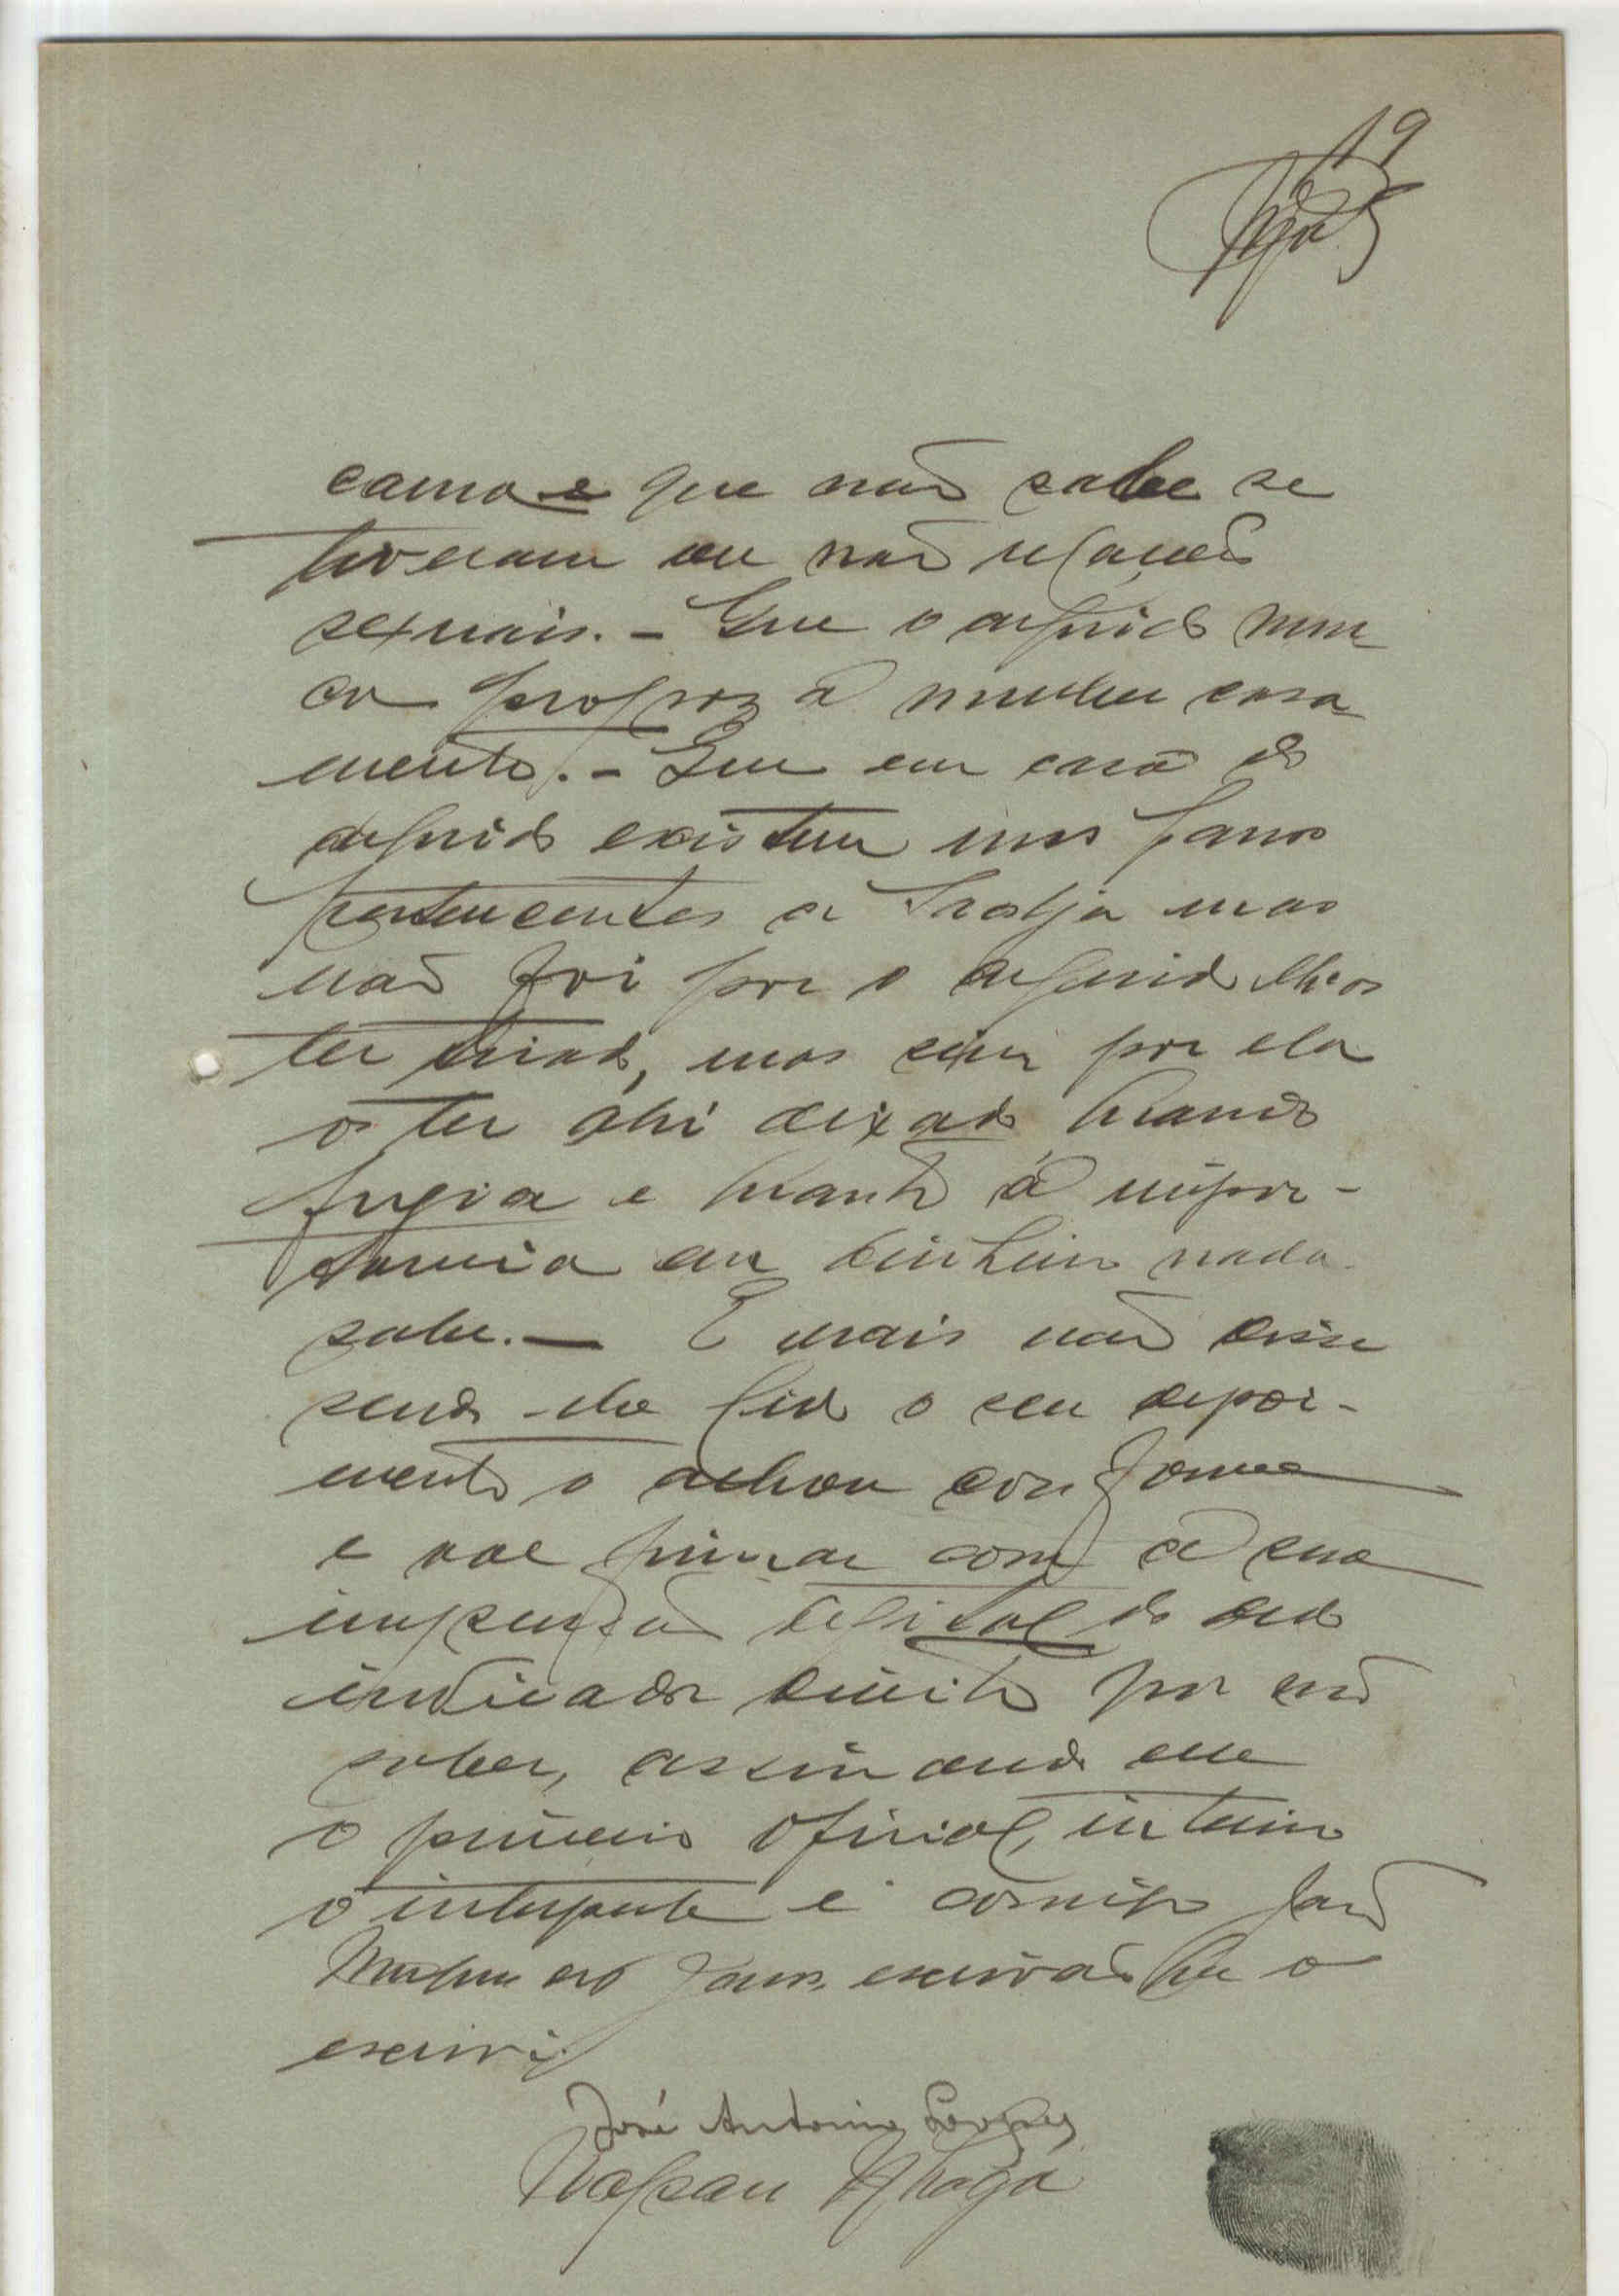 19
cama e que não sabe se
tiveram ou não relações
sexuais. - Que o arguido nun
ca propoz á mulher casa
mento. - Que em casa do
arguido existem uns panos
pertencentes a mas
não foi por o arguido lhos
ter tirado, mas sim por ela
os ter ahi deixado quando
fugia e quanto á impor-
tancia em dinheiro nada
sabe. — E mais não disse
sendo-lhe lido o seu depoi-
mento o achou conforme
e vae firmar com a sua
impressão digital do dedo
indicador direito por não
saber, assinando
o primeiro oficial, interino
o interprete e comigo
escrivão que o
escrivi
José Antonio Lopes